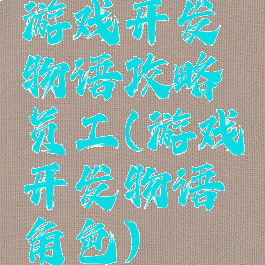 游戏开发
物语攻略
员工(游戏
开发物语
角色)